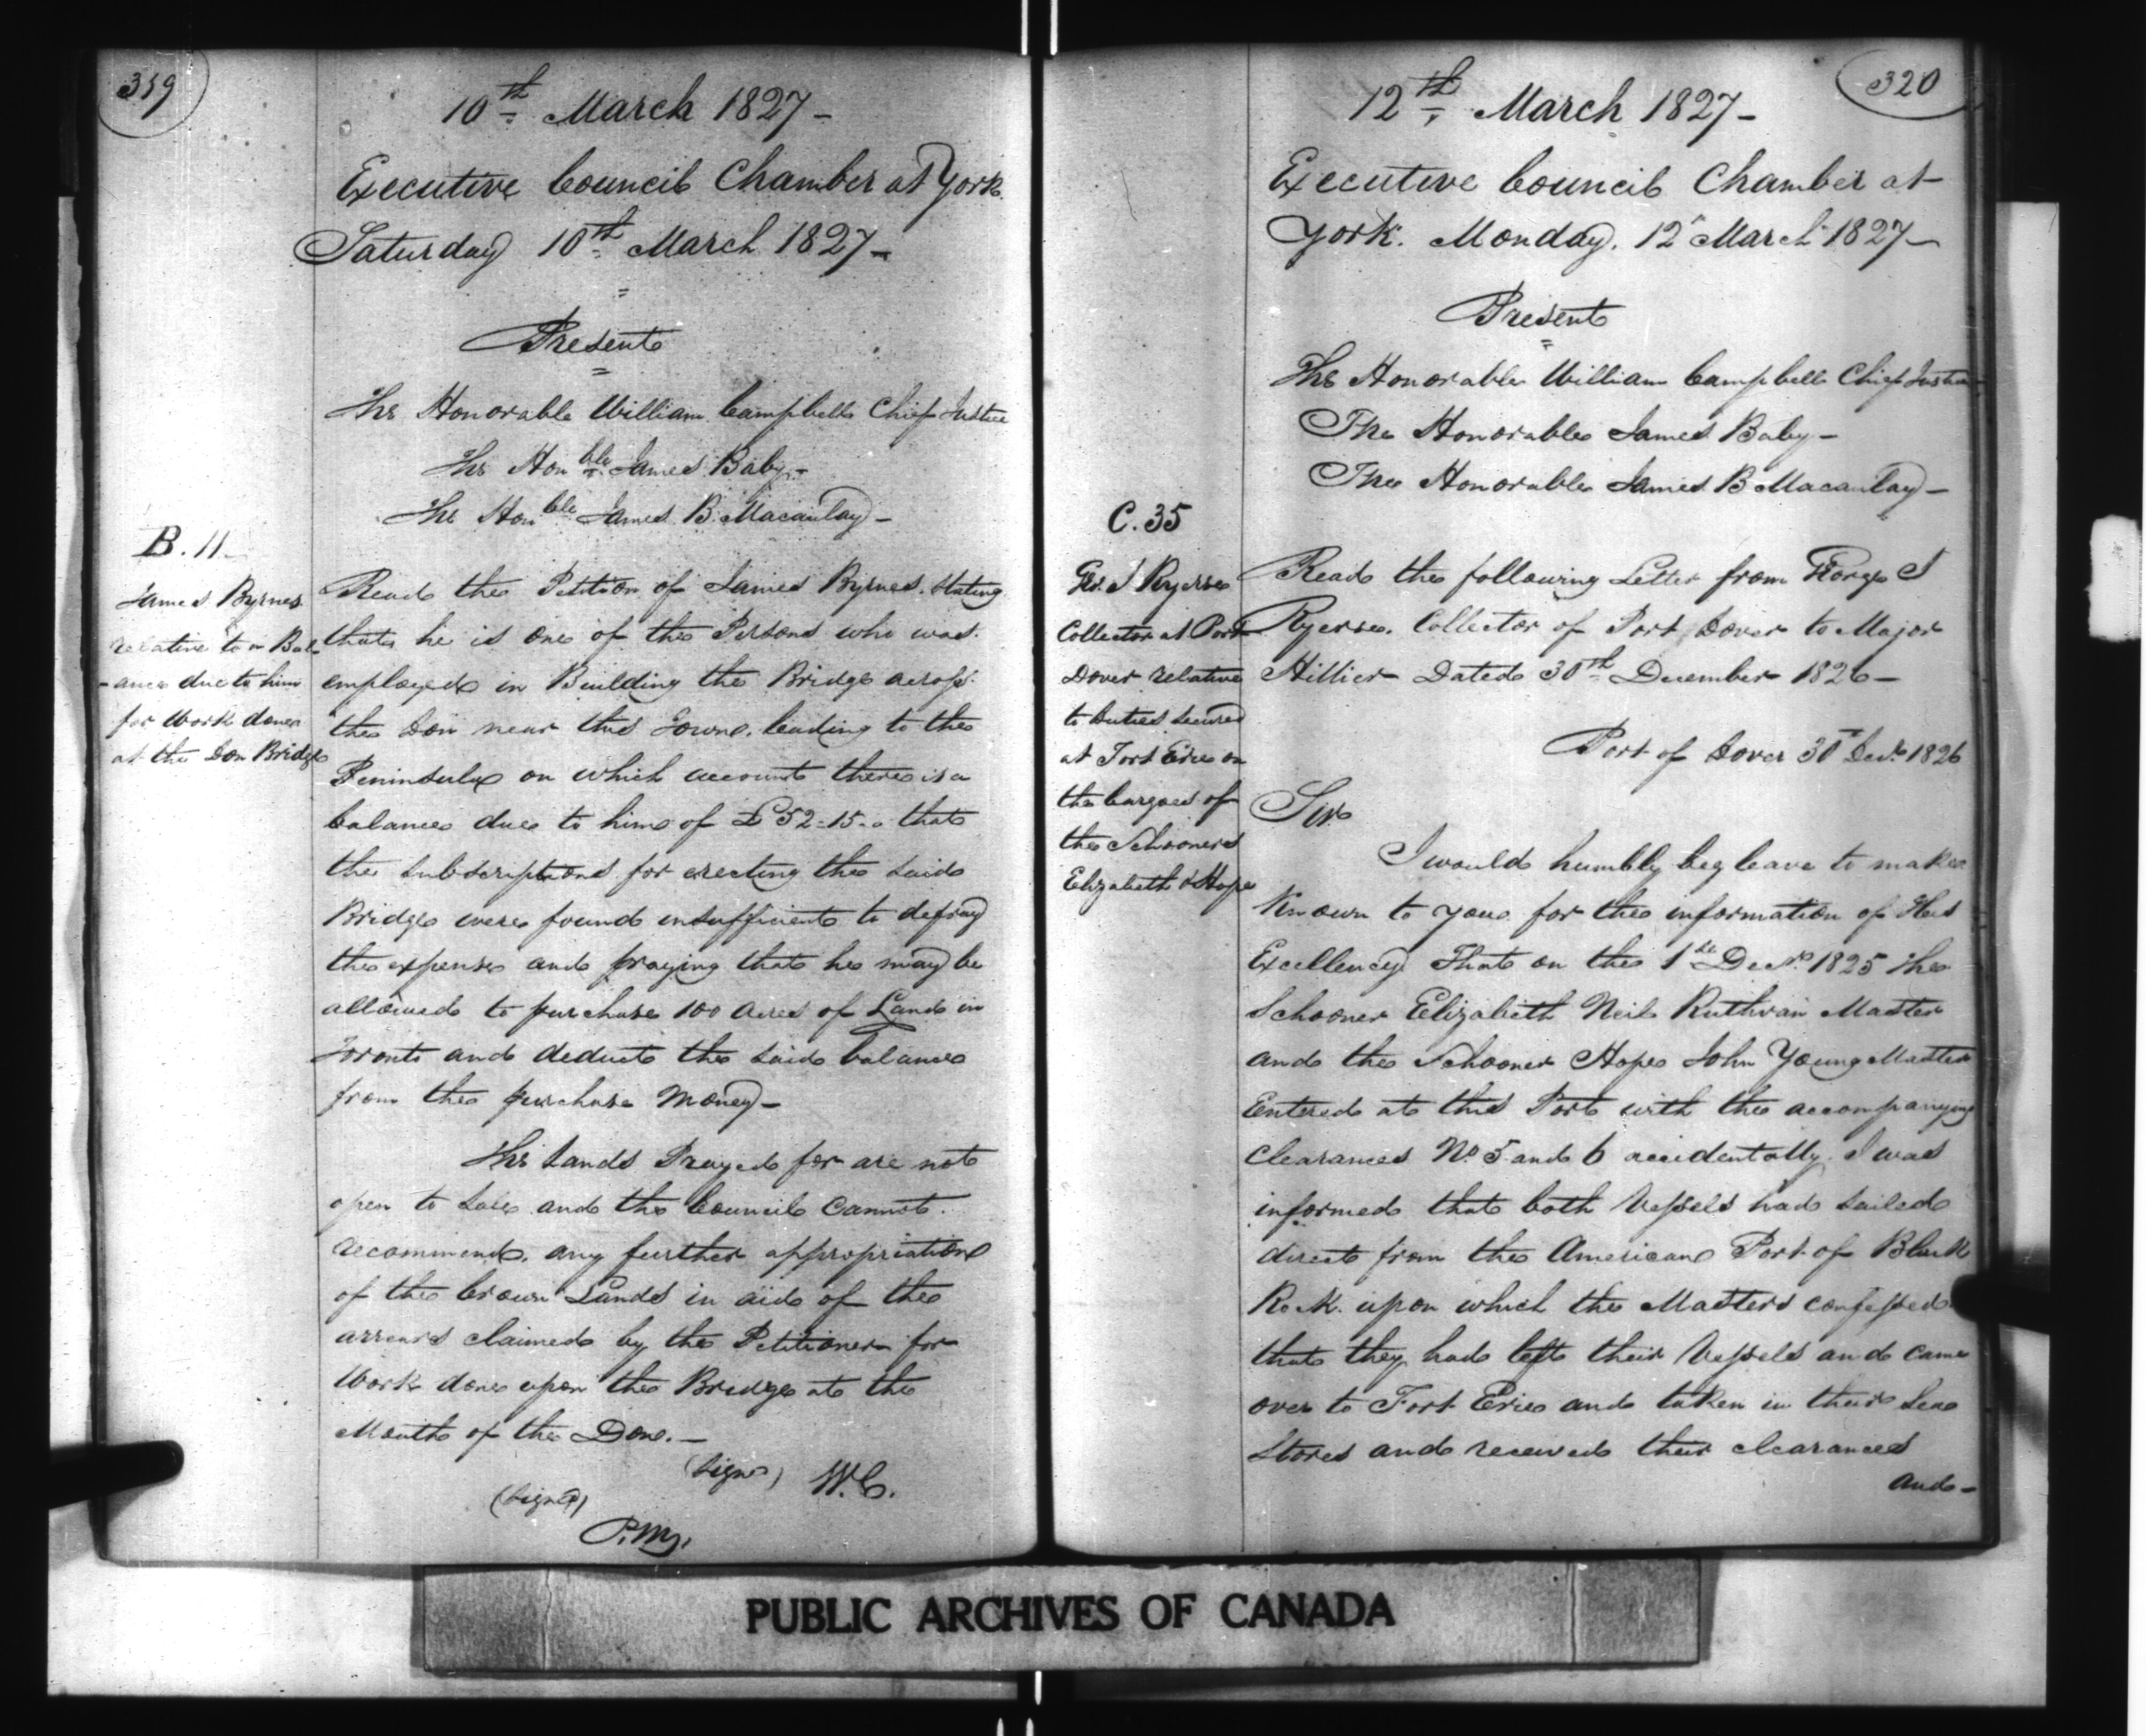 319
10th March 1827 -
Executive Council Chamber at York
Saturday 10th March 1827 -
Present
The Honorable William Campbell Chief Justice
The Honble James Baby -
The Honble James B. Macaulay -
B. 11
James Byrnes
relative to a Bal
-ance due to him
for Work done
at the Don Bridge
Read the Petition of James Byrnes. Stating
that he is one of the Persons who was
employed in Building the Bridge across
the Don near this Town, leading to the
Peninsula on which account there is a
balance due to him of £52-15-0 that
the subscriptions for erecting the said
Bridge were found insufficient to defray
the expense and praying that he may be
allowed to purchase 100 Acres of Land in
Toronto and deduct the said balance
from the purchase Money -
The Lands Prayed for are not
open to Sale and the Council Cannot
recommend, any further appropriation
of the Crown Lands in aid of the
arrears claimed by the Petitioner for
Work done upon the Bridge at the
Mouth of the Don. -
(Signed) W.C.
(Signed)
P.M.
320
12th March 1827 -
Executive Council Chamber at
York. Monday. 12 March 1827 -
Present
The Honorable William Campbell Chief Justice
The Honorable James Baby -
The Honorable James B Macaulay -
C. 35
Geo. J Ryerse
Collector at Port
Dover relative
to Duties secured
at Fort Erie on
the Cargoes of
the Schooners
Elizabeth & Hope
Read the following Letter from George J
Ryerse. Collector of Port Dover to Major
Hillier Dated 30th December 1826 -
Port of Dover 30th Decr. 1826
Sir
I would humbly beg leave to make
Known to you for the information of His
Excellency That on the 1st Decr. 1825 the
Schooner Elizabeth Neil Ruthvain Master
and the Schooner Hope John Young Master
Entered at this Port with the accompanying
Clearances No 5 and 6 accidentally I was
informed that both Vessels had sailed
direct from the American Port of Black
Rock. upon which the Masters confessed
that they had left their Vessels and came
over to Fort Erie and taken in their Sea
Stores and received their clearances
and -
PUBLIC ARCHIVES OF CANADA